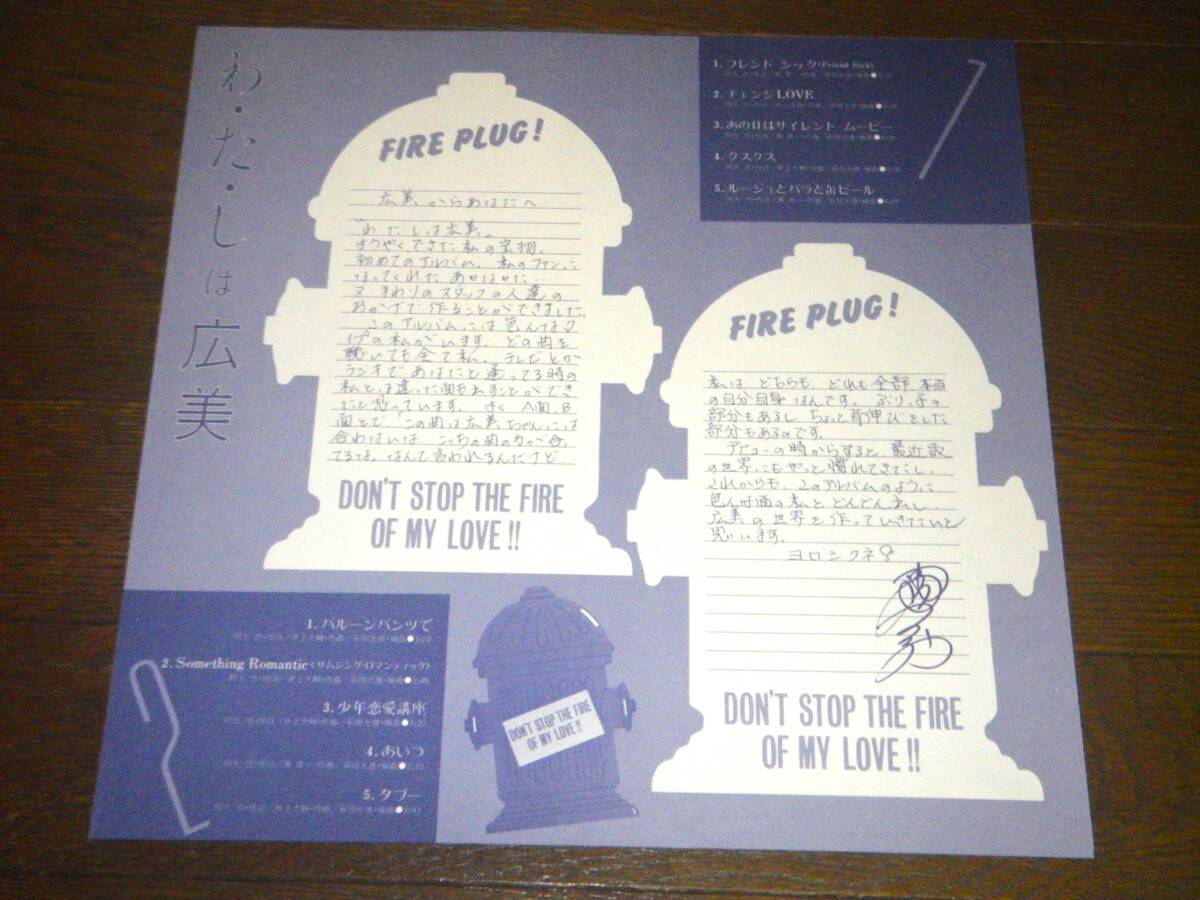 わ・た・しは広美
FIRE PLUG!
広美からあなたへ
"わたしは広美"
ようやくできた私の宝物、
初めてのアルバム、私のファンに
なってくれたあなたはじめ、
又まわりのスタッフの人達の
おかげで作ることができました。
このアルバムには色んなタ
イプの私がいます。どの曲を
聴いても全て私。テレビとか
ラジオであなたと逢ってる時の
私とは違った面も出すことができ
たと思っています。よくA面、B
面とで"この曲は広美ちゃんには
合わないな こっちの曲の方が合っ
てるな"なんて言われるんだけど
DON'T STOP THE FIRE
OF MY LOVE!!
1
1. フレンド シック(Friend Sick)
2. チェンジLOVE
3. あの日はサイレント ムービー
4. クスクス
5. ルージュとバラと缶ビール
FIRE PLUG!
私は、どちらも、どれも全部、本当
の自分自身なんです。ぶりっ子の
部分もあるし ちょっと背伸びをした
部分もあるのです。
デビューの時からすると、最近歌
の世界にもやっと慣れてきたし、
これからも、このアルバムのように
色んな面の私をどんどん出し、
広美の世界を作っていきたいと
思います。
ヨロシクネ
DON'T STOP THE FIRE
OF MY LOVE!!
2
1. バルーンパンツで
2. Something Romantic〈サムシング・ロマンティック〉
3. 少年恋愛講座
4. あいつ
5. タブー
DON'T STOP THE FIRE
OF MY LOVE!!